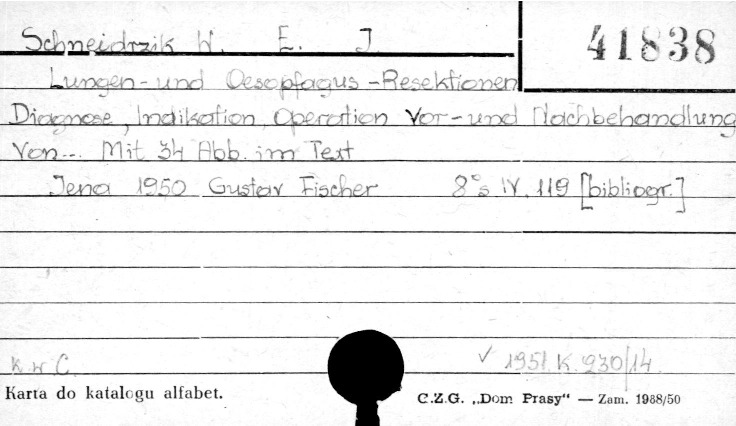 Schneidrzik W. E. J.
41838
Lungen- und Oesopfagus-Resektionen
Diagnose, Indikation, Operation Vor- und Nachbehandlung
Von... Mit 34 Abb. im Text
Jena 1950 Gustav Fischer 8° s. IV. 119 [bibliogr.]
K w C. √ 1951 K 930/14
Karta do katalogu alfabet. C.Z.G. „Dom Prasy" — Zam. 1988/50